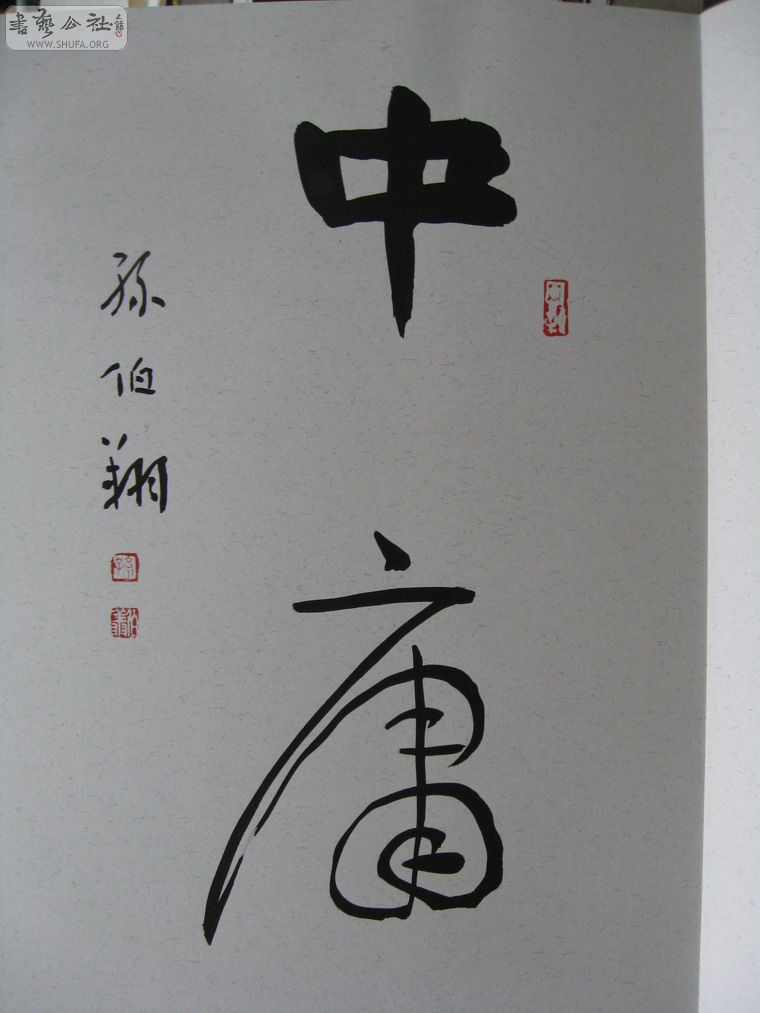 中庸
孙伯翔
書藝公社
WWW.SHUFA.ORG